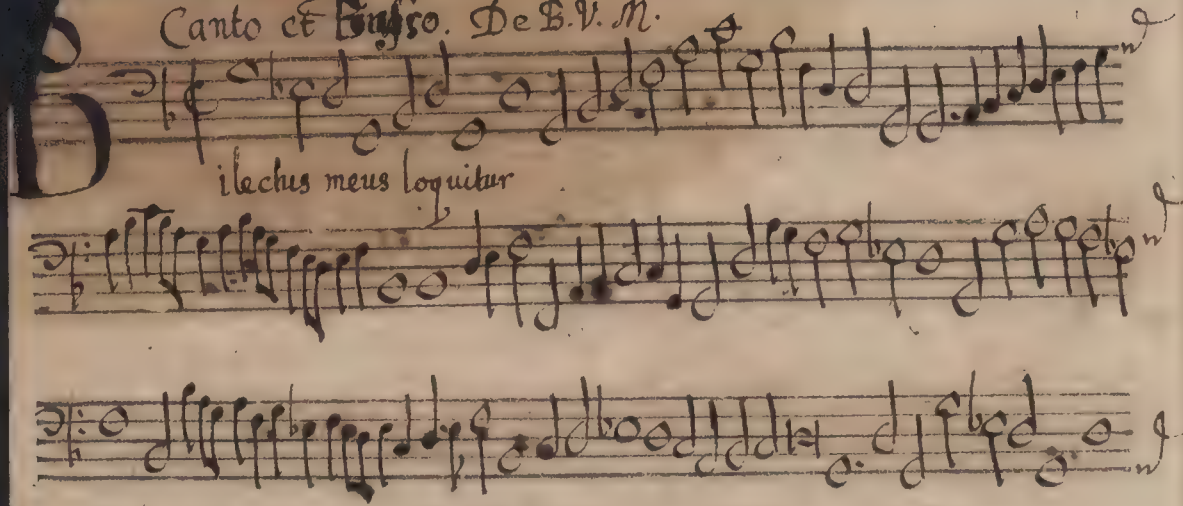 Canto et Basso. De B. V. M.
Dilectus meus loquitur